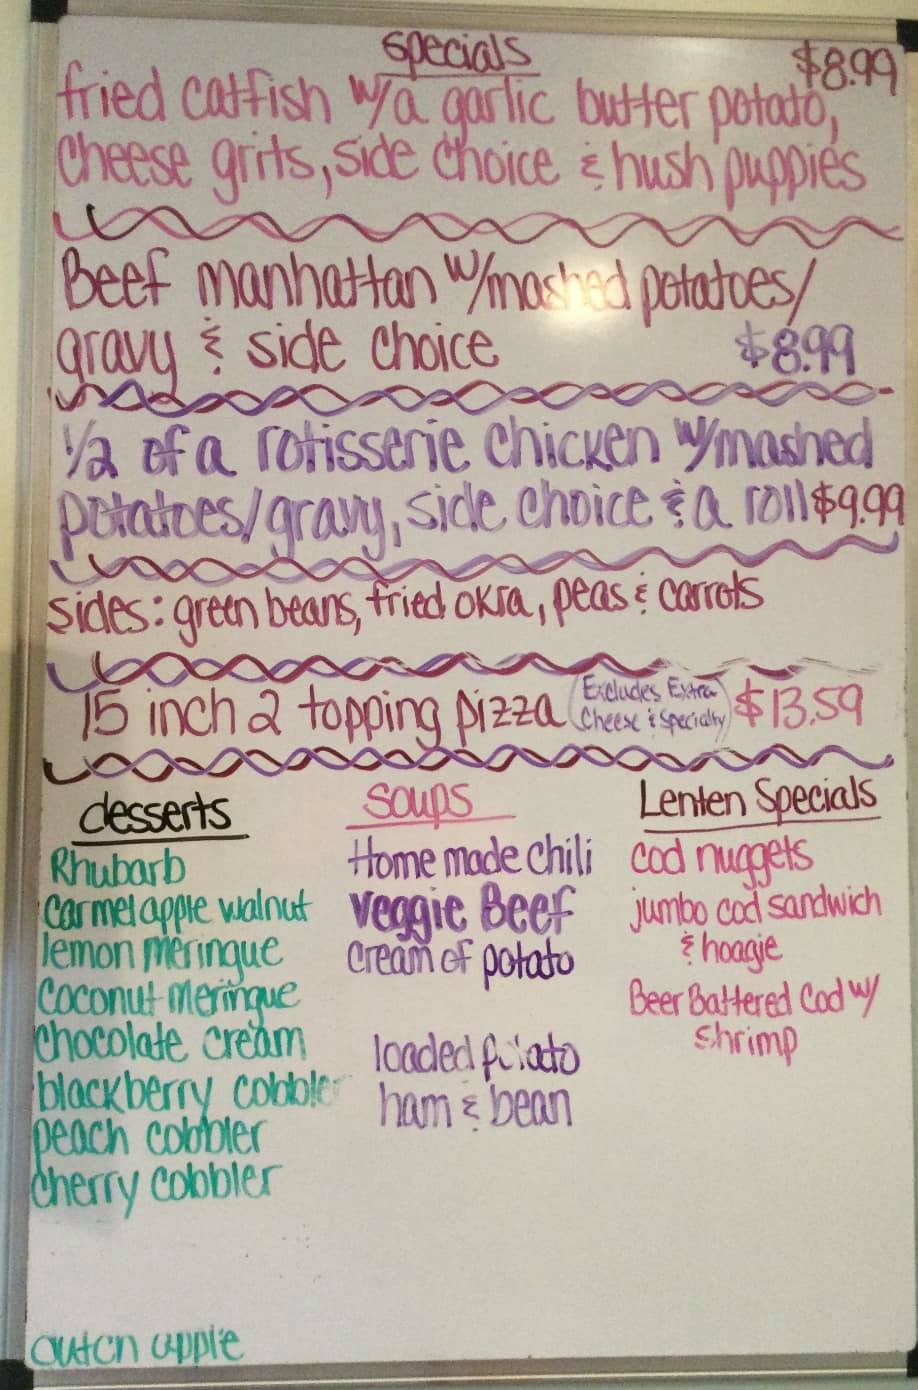 Specials
$8.99
fried catfish w/a garlic butter potato,
Cheese grits, side choice & hush puppies
Beef manhattan w/mashed potatoes/
gravy & side choice $8.99
1/2 of a rotisserie chicken w/mashed
potatoes/gravy, side choice & a roll $9.99
sides: green beans, fried okra, peas & carrots
15 inch 2 topping pizza (Excludes Extra Cheese & Specialty) $13.59
desserts
Rhubarb
carmel apple walnut
lemon meringue
Coconut meringue
chocolate cream
blackberry cobbler
peach cobbler
cherry cobbler
dutch apple
Soups
Home made chili
Veggie Beef
Cream of potato
loaded potato
ham & bean
Lenten Specials
cod nuggets
jumbo cod sandwich
& hoagie
Beer Battered Cod w/
shrimp